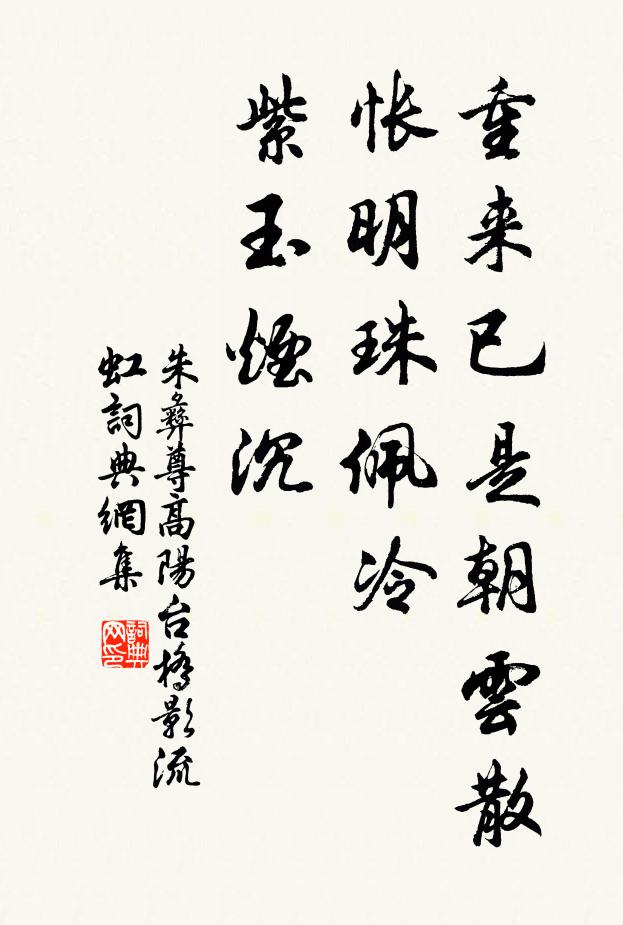 重来已是朝雲散
悵明珠佩冷
紫玉煙沉
朱彝尊高陽台橋影流
虹詞典網集
詞典网印